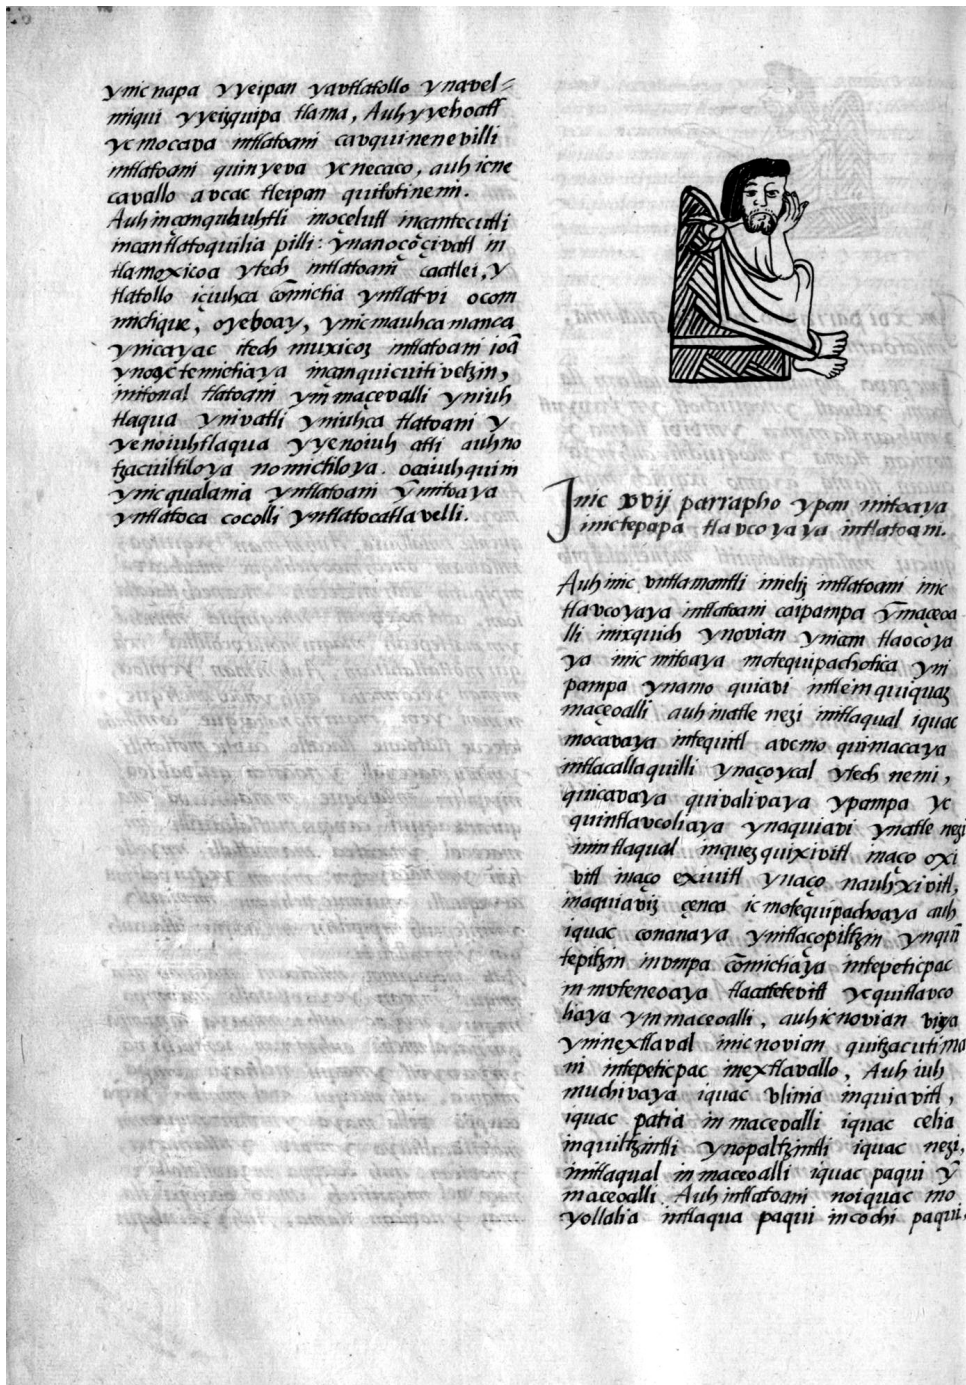 ynic napa yyeipan yavtlatollo ynavel=
miqui yyeyxquipa tlama, Auh yyehoatl
yc mocava intlatoani cavquinenevilli
intlatoani quinyeva yc necaco, auh icne
cavallo avcac tleipan quitotinemi.
Auh inçanquauhtli moçelutl incantecutli
incantlatoquilia pilli: ynanoço çivatl in
tlamoxicoa ytech intlatoani caatlei, y
tlatollo içiuhca cōmictia yntlatvi ocom
mictique, oyehoay, ynic mauhca manca
ynicayac itech muxicoz intlatoani ioā
ynoc temictiaya inanquicuitivetzin,
initonal tlatoani ym̄ maçevalli yniuh
tlaqua ynivatli yniuhca tlatoani y
yenoiuhtlaqua yyenoiuh atli auhno
tzacuiltiloya nomictiloya. ocaiuhquim
ynic qualania yntlatoani ym̄ mitoaya
yntlatoca cocolli yntlatocatlavelli.
Jnic xvij parrapho ypan mitoaya
inictepapa tlavcoyaya intlatoani.
Auh inic vntlamantli inieliz intlatoani inic
tlavcoyaya intlatoani caipampa ym̄ maçeoa
lli inixquich ynovian yniam tlaocoya
ya inic mitoaya motequipachotica yni
pampa ynamo quiavi intleinquiquaz
maçeoalli auh inatle nezi intlaqual iquac
mocavaya intequitl avcmo quimacaya
intlacallaquilli ynaçoycal ytech nemi,
quicavaya quivalivaya ypampa yc
quintlavcoliaya ynaquiavi ynatle nezi
inintlaqual inquezquixivitl inaço oxi
vitl inaço exivitl ynaço nauhxivitl,
inaquiaviz çenca ic motequipachoaya auh
iquac conanaya yntlaçopiltzin ynquin̄
tepitzin invmpa cōmictiaya intepeticpac
in moteneoaya tlacatetevitl yc quitlavco
liaya ym maceoalli, auh ic novian viya
ymnextlaval inic novian quitzacutima
ni intepeticpac inextlavallo, Auh iuh
muchivaya iquac vlinia inquiavitl,
iquac patia in macevalli iquac celia
inquiltzintli ynopaltzintli iquac nezi,
inintlaqual in maceoalli iquac paqui ym̄
maceoalli. Auh intlatoani noiquac mo
yollalia intlaqua paqui incochi paqui,